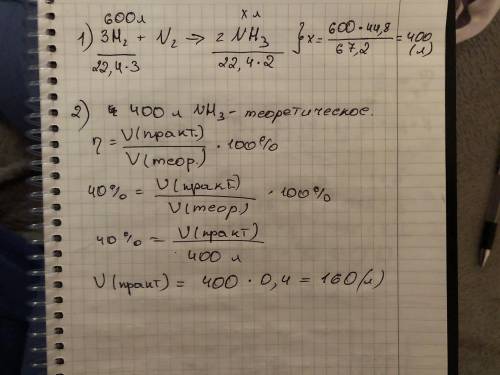 600л х л
1) 3H₂ + N₂ → 2 NH₃ } x = 600·44,8 / 67,2 = 400 (л)
22,4·3 22,4·2
2) 400 л NH₃ - теоретическое.
η = V(практ.) / V(теор.) · 100%
40% = V(практ.) / V(теор.) · 100%
40% = V(практ) / 400 л
V(практ) = 400 · 0,4 = 160 (л)